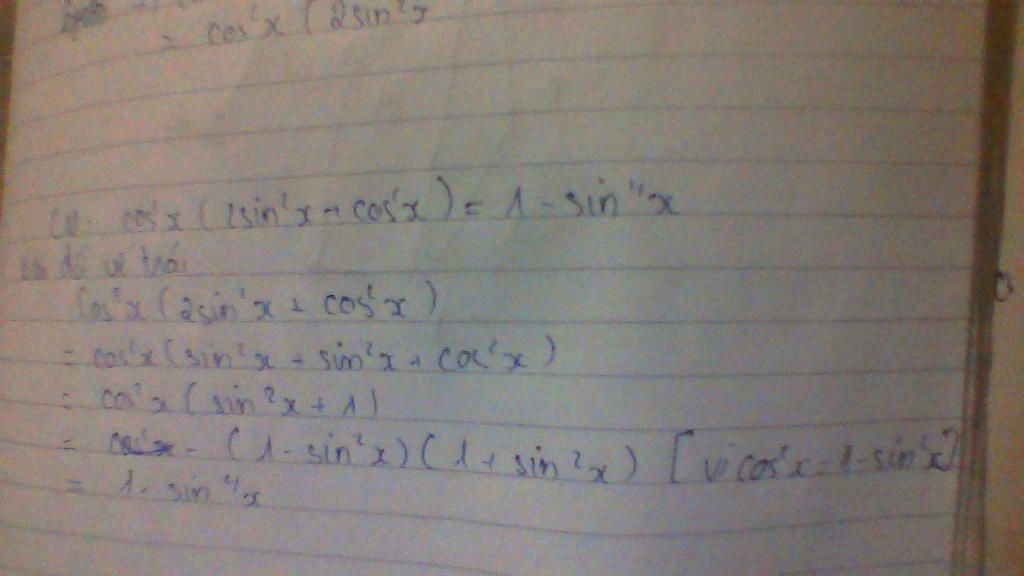 = cos²x (2sin²x
CM: cos²x (2sin²x + cos²x) = 1 - sin⁴x
đi vế trái
Cos²x (2sin²x + cos²x)
= cos²x (sin²x + sin²x + cos²x)
= cos²x (sin²x + 1)
= (1 - sin²x) (1 + sin²x) [vì cos²x = 1 - sin²x]
= 1 - sin⁴x